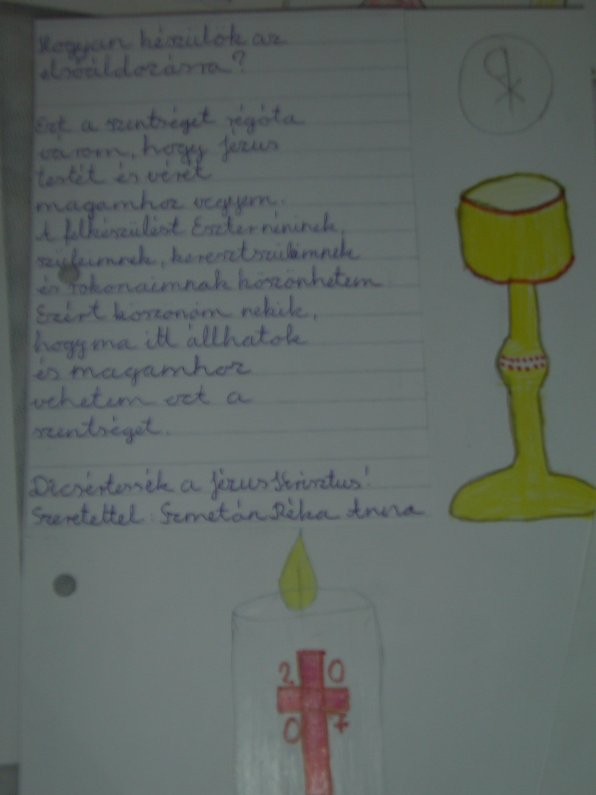 Hogyan készülök az
elsőáldozásra?
Ezt a szentséget régóta
várom, hogy Jézus
testét és vérét
magamhoz vegyem.
A felkészülést Eszter néninek,
szüleimnek, keresztszüleimnek
és rokonaimnak köszönhetem.
Ezért köszönöm nekik,
hogy ma itt állhatok
és magamhoz
vehetem ezt a
szentséget.
Dicsértessék a Jézus Krisztus!
Szeretettel: Szmetán Réka Anna
2 0
0 7